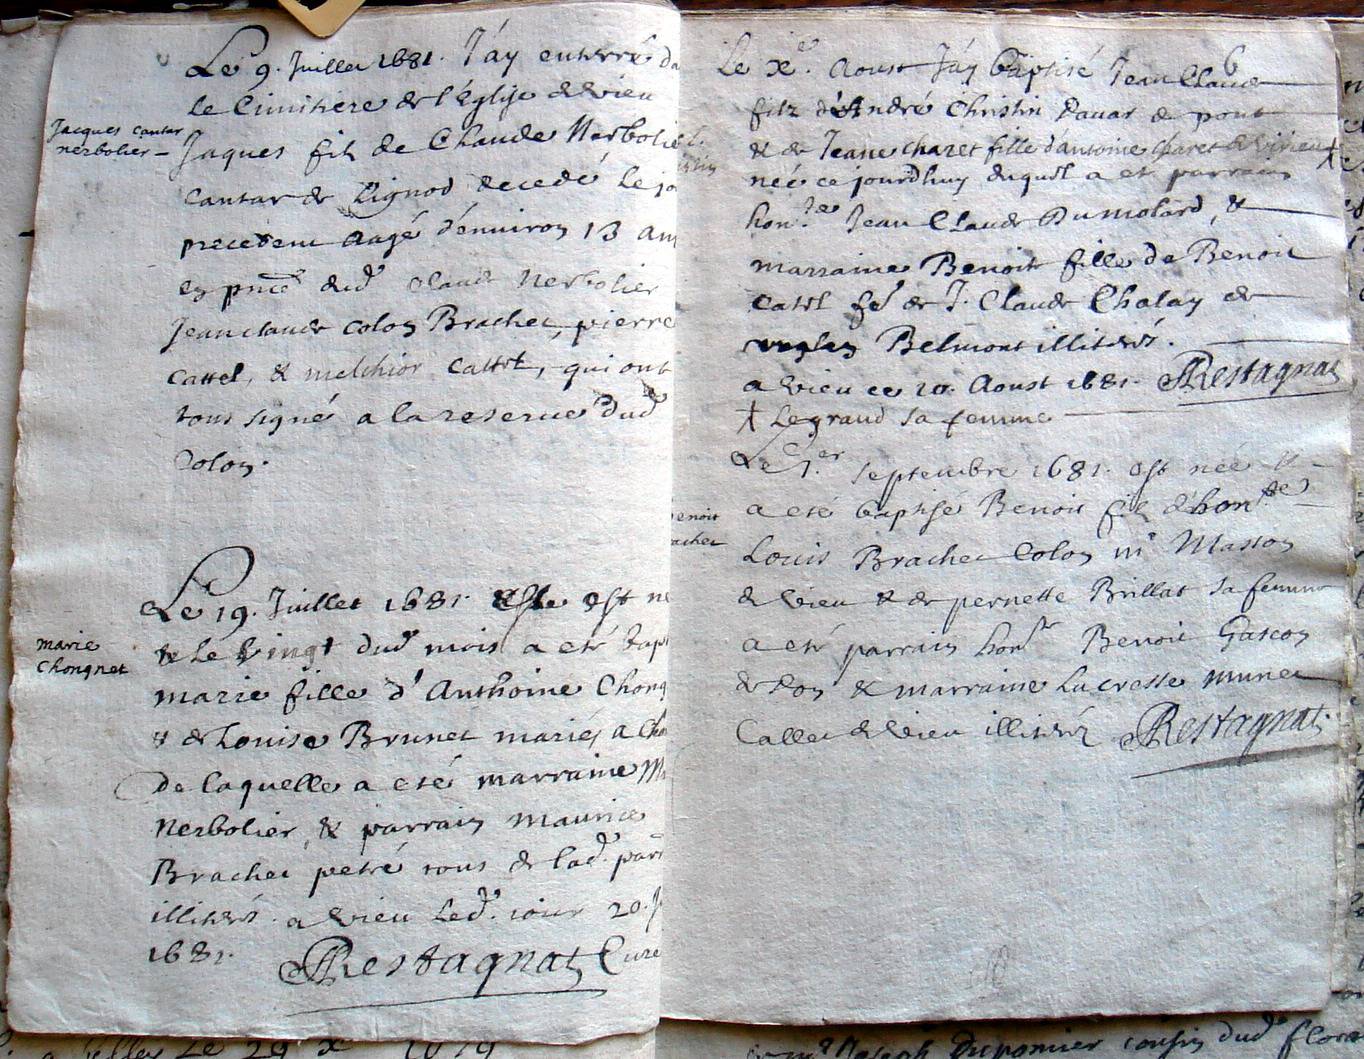 Le 9. Juillet 1681. J'ay enterré da
le Cimitiere de l'Eglise de vieu
Jacques cantar
nerbolier
Jaques filz de Claude Nerbolie
Cantar de Lignod decedé le jo
precedent aagé d'environ 13 an
en pnce dud. Claude Nerbolier
Jean claude colon Brachet, pierre
cattel, & melchior cattel, qui ont
tous signé a la reserue dud.
Colon.
Le 19. Juillet 1681. est ne
& le vingt dud. mois a eté bapt
marie
Chongnet
marie fille d'Anthoine Chong
& de Louise Brunet mariés a Cho
de laquelle a eté marraine M
Nerbolier, & parrain maurice
Brachet petré tous de lad. par
illiterés. a vieu led. iour 20. J
1681. Restagnat Curé
6
Le xe. Aoust J'ay Baptisé Jean Claude
filz d'André Christin Pauar de pont
& de Jeane charet fille d'antoine charet de virieu
née ce jourdhuy duquel a eté parrain
hon.le Jean Claude Dumolard, &
marraine Benoite fille de Benoit
Catel fe. de J. Claude Chalay de
Belmont illiterés.
a vieu ce 10. Aoust 1681. Restagnat
† Legrand sa femme
Le 1.er septembre 1681. est née &
a eté baptisé Benoit filz d'hon.ble
enoit
rachet
Louis Brachet Colon me Masson
de vieu & de pernette Brillat sa femme
a eté parrain hon. Benoit Gascon
de Don & marraine Lucresse munet
Callet de vieu illiterez Restagnat
Joseph Dupomier cousin dud.